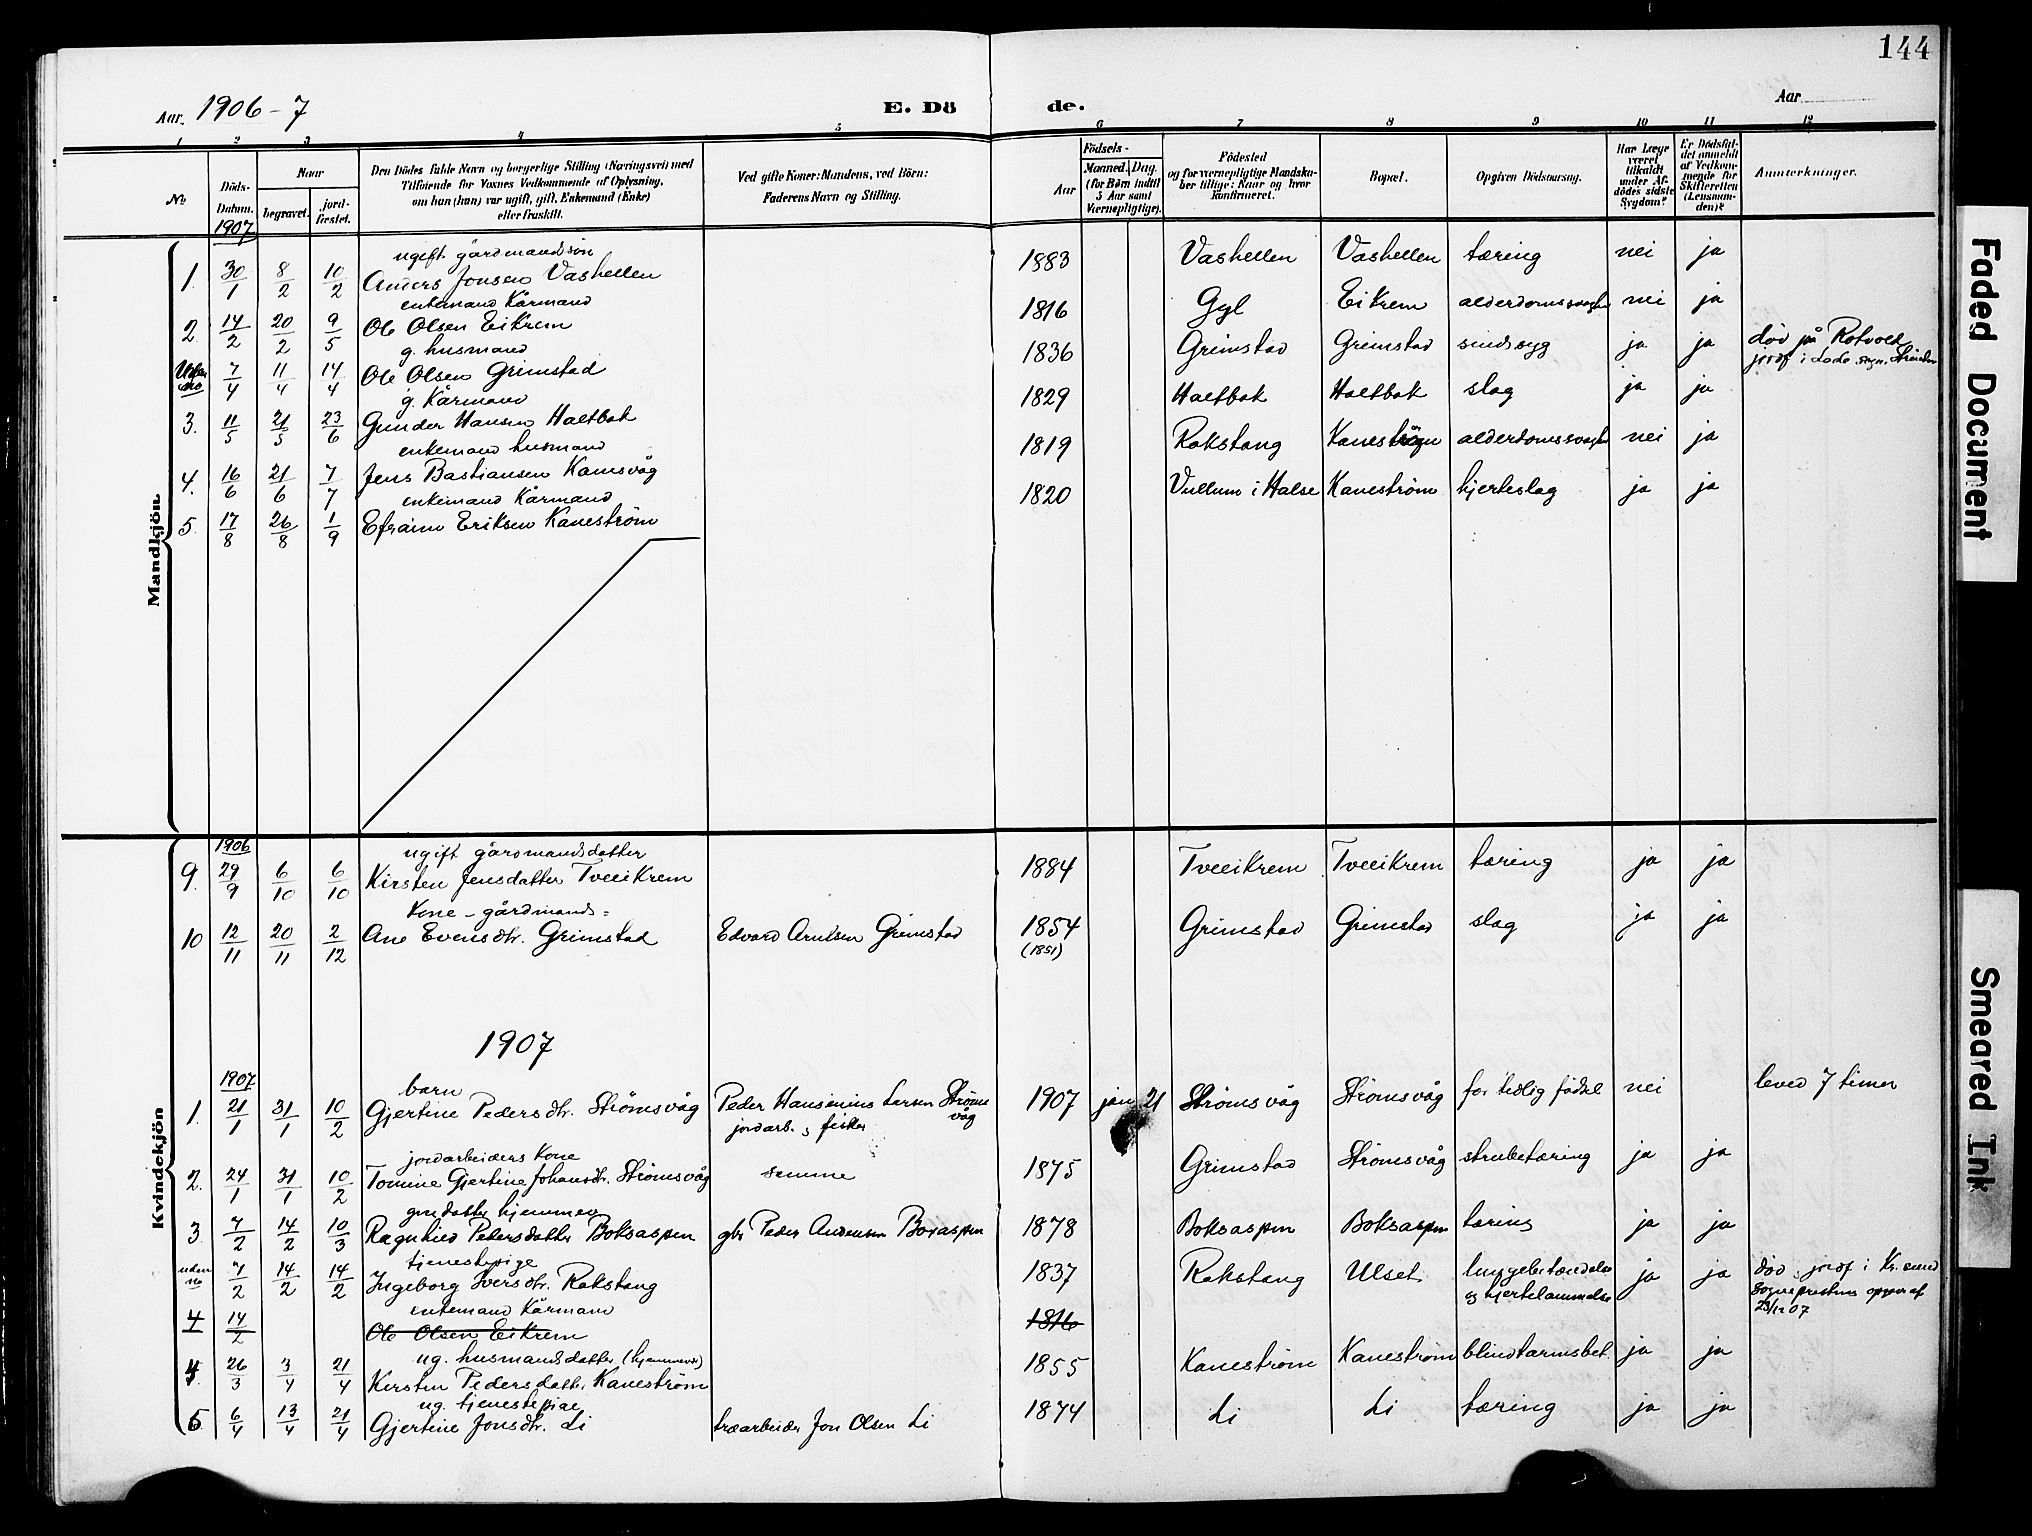 144
Aar. 1906-7 E. Dö de. Aar
1 2 3 4 5 6 7 8 9 10 11 12
No
Döds-
Datum.
Naar
begravet.
jord-
fæstet.
Den Dödes fulde Navn og borgerlige Stilling (Næringsvei) med
Tilföiende for Voxnes Vedkommende af Oplysning,
om han (hun) var ugift, gift, Enkemand (Enke)
eller fraskilt.
Ved gifte Koner: Mandens, ved Börn:
Faderens Navn og Stilling.
Födsels-
Aar
Maaned. Dag.
(for Börn indtil
5 Aar samt
Værnepligtige).
Födested
og for værnepligtige Mandska-
ber tillige: Naar og hvor
konfirmeret.
Bopæl.
Opgiven Dödsaarsag.
Har Læge
været
tilkaldt
under Af-
dödes sidste
Sygdom?
Er Dödsfal-
det anmeldt
af Vedkom-
mende for
Skifteretten
(Lensman-
den)?
Anmærkninger.
Mandkjön
1907
ugift gårdmandssøn
1. 30/1 8/2 10/2 Anders Jonsen Vashellen 1883 Vashellen Vashellen tæring nei ja
enkemand Kårmand
2. 14/2 20/2 9/5 Ole Olsen Eikrem 1816 Gyl Eikrem nei ja
g. husmand
Uden no 7/4 11/4 14/4 Ole Olsen Grimstad 1836 Grimstad Grimstad sindssyg ja ja død på Rotvold
jordf i Lade sogn.
g. Kårmand
3. 11/5 21/5 23/6 Gunder Hansen Haltbak 1829 Haltbak Haltbak slag ja ja
enkemand husmand
4. 16/6 21/6 7/7 Jens Bastiansen Kanesvåg 1819 Rakstang nei ja
enkemand Kårmand
5 17/8 26/8 1/9 Efraim Eriksen Kanestrøm 1820 Vullum i Halse Kanestrøm hjerteslag ja ja
Kvindekjön
1906
ugift gårdmandsdatter
9. 29/9 6/10 6/10 Kirsten Jensdatter Tveeikrem 1884 Tveeikrem Tveeikrem tæring ja ja
Kone - gårdmands=
10 12/11 20/11 2/12 Ane Evensdtr. Grimstad Edvard Arntsen Grimstad 1854 Grimstad Grimstad slag ja ja
(1851)
1907
1907
barn
1. 21/1 31/1 10/2 Gjertine Pedersdtr. Strømsvåg Peder Hansinius Larsen Strømsvåg 1907 jan 21 Strømsvåg Strømsvåg for tidlig fødsel nei leved 7 timer
jordarb. & fisker
jordarbeiders Kone
2. 24/1 31/1 10/2 Tomine Gjertine Johansdtr. Strømsvåg samme 1875 Grimstad Strømsvåg strubetæring ja ja
gmdatter hjemmev
3. 7/2 14/2 10/3 Ragnhild Pedersdatter Boksaspen gbr Peder Andersen Boxaspen 1878 Boksaspen Boksaspen tæring ja ja
tjenestepige
uden no 7/2 14/2 14/2 Ingeborg Iversdtr. Rakstang 1837 Rakstang Ulset lungebetændelse
og hjertelammelse ja ja død & jordf i Kr.sund
Sognepresten opgav af
23/12 07
enkemand Kårmand
4 14/2 Ole Olsen Eikrem 1816
ug. husmandsdatter (hjemmevær)
4. 26/3 3/4 21/4 Kirsten Pedersdatter Kanestrøm 1855 Kanestrøm Kanestrøm blindtarmsbet. ja ja
ug. tjenestepige
5. 6/4 13/4 21/4 Gjertine Jonsdtr. Li træarbeider Jon Olsen Li 1874 Li Li tæring ja ja
Faded Document
Smeared Ink